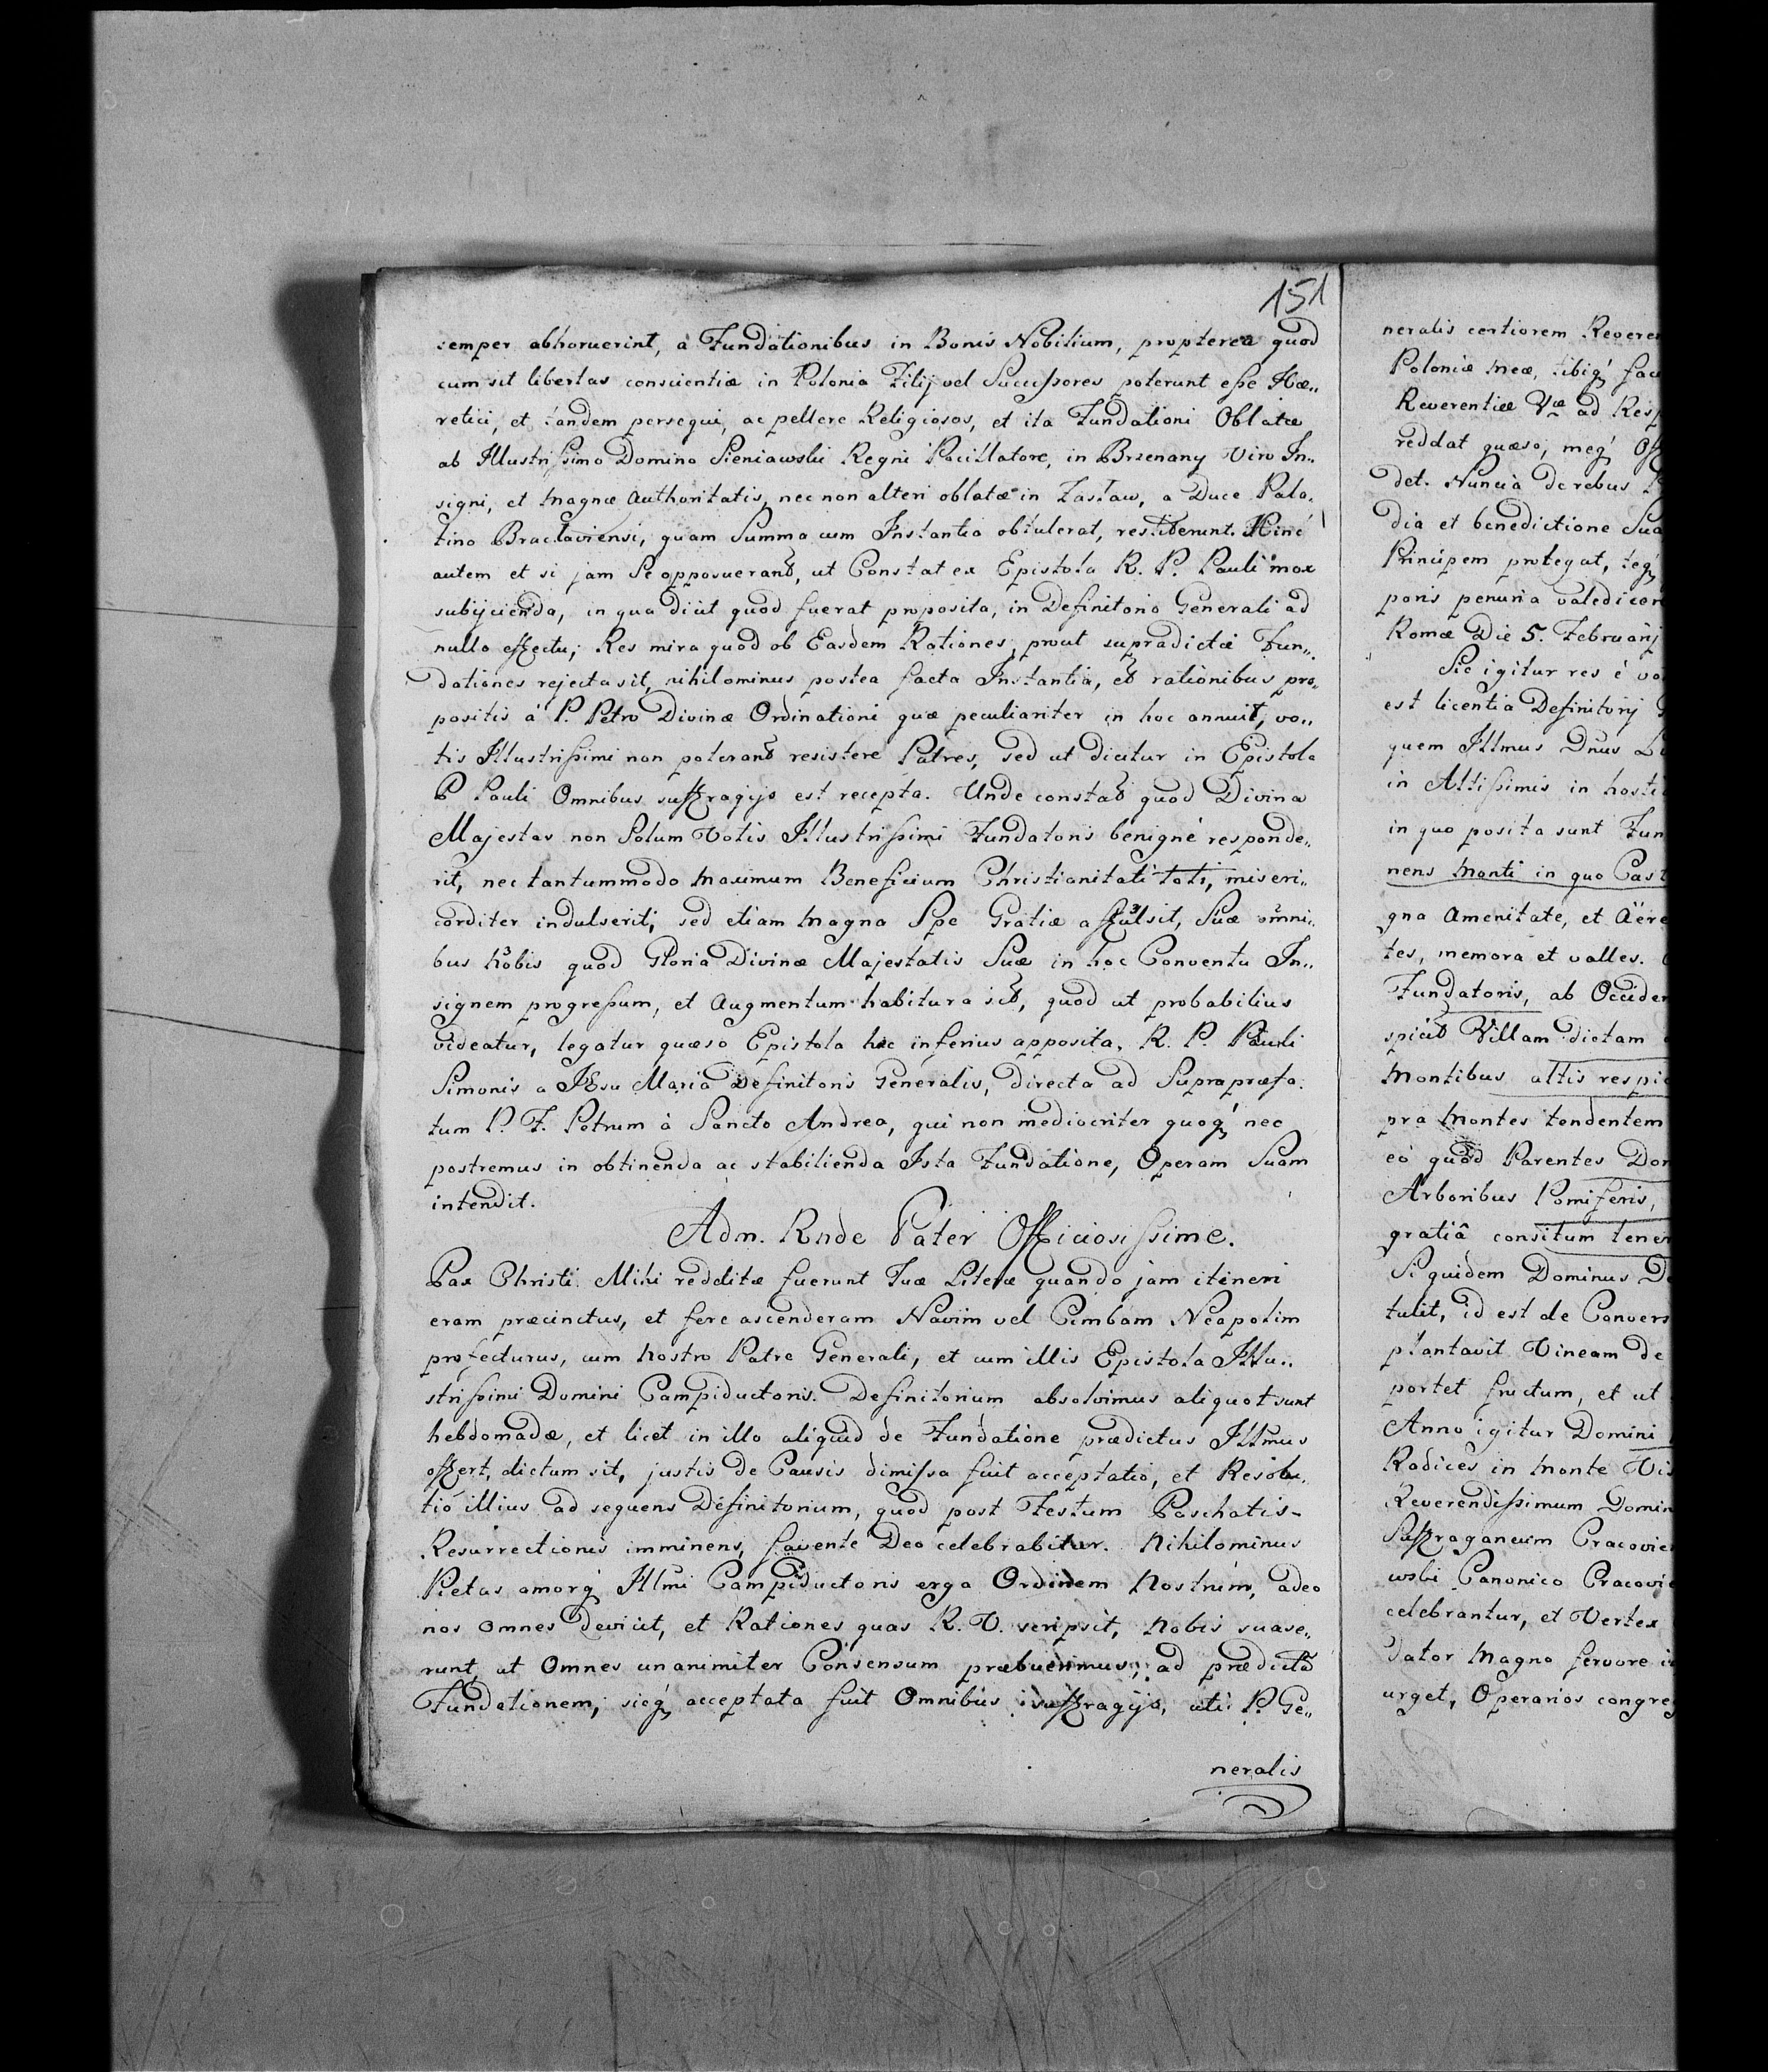 151
semper abhoruerint, à Fundationibus in Bonis Nobilium, propterea quod
cum sit libertas conscientiæ in Polonia Filij vel Successores poterunt esse Hæ„
retici, et tandem persequi, ac pellere Religiosos, et ita Fundationi Oblatæ
ab Illustrissimo Domino Sieniawski Regni Pocillatore, in Brzenany Viro In„
signi, et magnæ Authoritatis, nec non alteri oblatæ in Zasław, a Duce Pala„
tino Braclaviensi, quam Summa cum Instantia obtulerat, restiterunt. Hinc
autem et si jam Se opposuerant, ut Constat ex Epistola R. P. Pauli mox
subijcienda, in qua dicit quod fuerat proposita, in Definitorio Generali ad
nullo effectu; Res mira quod ob Easdem Rationes, prout supradictæ Fun„
dationes rejecta sit, nihilominus postea facta Instantia, et rationibus pro„
positis á P. Petro Divinæ Ordinationi quæ peculiariter in hoc annuit, vo„
tis Illustrissimi non poterant resistere Patres, sed ut dicitur in Epistola
P Pauli Omnibus suffragijs est recepta. Unde constat quod Divina
Majestas non Solum Votis Illustrissimi Fundatoris benigné responde„
rit, nec tantummodo maximum Beneficium Christianitati toti, miseri„
corditer indulserit; sed etiam magna Spe Gratiæ affulsit, Suæ omni„
bus nobis quod Gloria Divinæ Majestatis Suæ in hoc Conventu In„
signem progressum, et Augmentum habitura sit, quod ut probabilius
videatur, legatur quæso Epistola hic inferius apposita, R. P. Pauli
Simonis a JEsu Maria Definitoris Generalis, directa ad Suprapræfa„
tum P. F. Petrum à Sancto Andrea, qui non mediocriter quoq́ nec
postremus in obtinenda ac stabilienda Ista Fundatione, Operam Suam
intendit.
Adm. Rnde Pater Officiosissime.
Pax Christi. Mihi redditæ fuerunt Tuæ Literæ quando jam itineri
eram præcinctus, et fere ascenderam Navim vel Cimbam Neapolim
profecturus, cum Nostro Patre Generali, et cum illis Epistola Illu„
strissimi Domini Campiductoris. Definitorium absolvimus aliquot sunt
hebdomadæ, et licet in illo aliquid de Fundatione prædictus Illmus
offert, dictum sit, justis de Causis dimissa fuit acceptatio, et Resolu„
tio illius ad sequens Definitorium, quod post Festum Paschatis-
Resurrectionis imminens, favente Deo celebrabitur. Nihilominus
Pietas amorq́ Illmi Campiductoris erga Ordinem Nostrum, adeo
nos omnes devicit, et Rationes quas R. V. scripsit, Nobis suase„
runt, ut Omnes unanimiter Consensum præbuerimus; ad prædictã
Fundationem; sicq́ acceptata fuit Omnibus suffragijs, uti P. Ge„
neralis
neralis certiorem
Poloniæ meæ, tibiq́
Reverentiæ Væ ad
reddat quæso, meq́
det. Nuncia de rebus
dia et benedictione
Principem protegat,
poris penuria
Romæ Die 5. Februarij
Sic igitur res é
est licentia Definitorij
quem Illmus Dnus
in Altissimis in
in quo posita sunt
nens Monti in quo
gna Amenitate, et
tes, memora et valles.
Fundatoris, ab
spicit Villam dictam
Montibus altis
pra Montes tendentem
eó quod Parentes
Arboribus Pomiferis,
gratiâ consitum
Si quidem Dominus
tulit, id est de
plantavit Vineam de
portet fructum, et ut
Anno igitur Domini
Radices in Monte
Reverendissimum
Suffraganeum
wski Canonico
celebrantur, et Vertex
dator Magno fervore
urget, Operarios